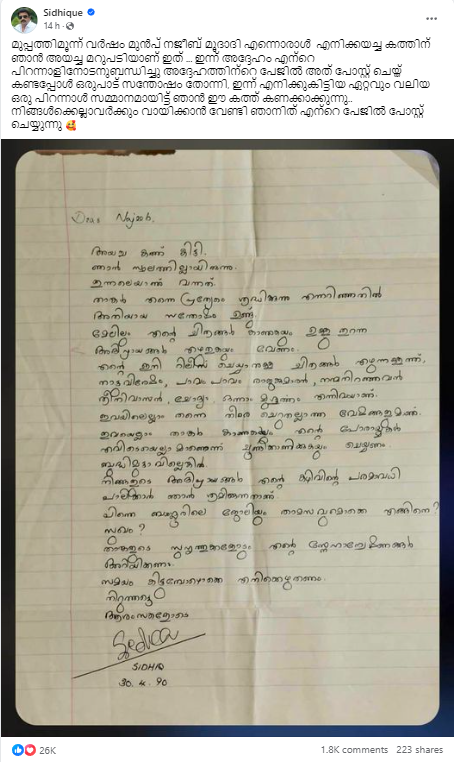 Sidhique
14 h
മുപ്പത്തിമൂന്ന് വർഷം മുൻപ് നജീബ് മൂദാദി എന്നൊരാൾ എനിക്കയച്ച കത്തിന്
ഞാൻ അയച്ച മറുപടിയാണ് ഇത് ... ഇന്ന് അദ്ദേഹം എന്റെ
പിറന്നാളിനോടനുബന്ധിച്ചു അദ്ദേഹത്തിന്റെ പേജിൽ അത് പോസ്റ്റ് ചെയ്ത്
കണ്ടപ്പോൾ ഒരുപാട് സന്തോഷം തോന്നി, ഇന്ന് എനിക്കുകിട്ടിയ ഏറ്റവും വലിയ
ഒരു പിറന്നാൾ സമ്മാനമായിട്ട് ഞാൻ ഈ കത്ത് കണക്കാക്കുന്നു..
നിങ്ങൾക്കെല്ലാവർക്കും വായിക്കാൻ വേണ്ടി ഞാനിത് എന്റെ പേജിൽ പോസ്റ്റ്
ചെയ്യുന്നു 🥰
Dear Najeeb,
അയച്ച കത്ത് കിട്ടി.
ഞാൻ സ്ഥലത്തില്ലായിരുന്നു.
ഇന്നലെയാണ് വന്നത്.
താങ്കൾ എന്നെ പ്രത്യേകം ശ്രദ്ധിക്കുന്നു എന്നറിഞ്ഞതിൽ
അതിയായ സന്തോഷം ഉണ്ട്.
മേലിലും എന്റെ ചിത്രങ്ങൾ കാണുകയും ഉള്ളു തുറന്ന
അഭിപ്രായങ്ങൾ എഴുതുകയും വേണം.
എന്റെ ഇനി റിലീസ് ചെയ്യാനുള്ള ചിത്രങ്ങൾ എഴുന്നള്ളത്ത്,
നാട്ടുവിശേഷം, പാവം പാവം രാജകുമാരൻ, നന്മനിറഞ്ഞവൻ
ശ്രീനിവാസൻ, ഒന്നാം മുഹൂർത്തം എന്നിവയാണ്.
ഇവയിലെല്ലാം തന്നെ തീരെ ചെറുതല്ലാത്ത വേഷങ്ങളുമാണ്.
ഇവയെല്ലാം താങ്കൾ കാണുകയും എന്റെ പോരായ്മകൾ
എവിടെയെല്ലാമാണെന്ന് ചൂണ്ടിക്കാണിക്കുകയും ചെയ്യണം.
ബുദ്ധിമുട്ടാവില്ലെങ്കിൽ.
നിങ്ങളുടെ അഭിപ്രായങ്ങൾ എന്റെ കഴിവിന്റെ പരമാവധി
പാലിക്കാൻ ഞാൻ ശ്രമിക്കുന്നതാണ്.
പിന്നെ ജോലിയും താമസവുമൊക്കെ എങ്ങിനെ?
സുഖം?
താങ്കളുടെ സുഹൃത്തുക്കളോടും എന്റെ സ്നേഹാന്വേഷണങ്ങൾ
അറിയിക്കണം.
സമയം കിട്ടുമ്പോഴൊക്കെ എനിക്കെഴുതണം.
നിറുത്തട്ടെ
ആശംസകളോടെ
SIDHIQ
30.4.90
26K
1.8K comments 223 shares